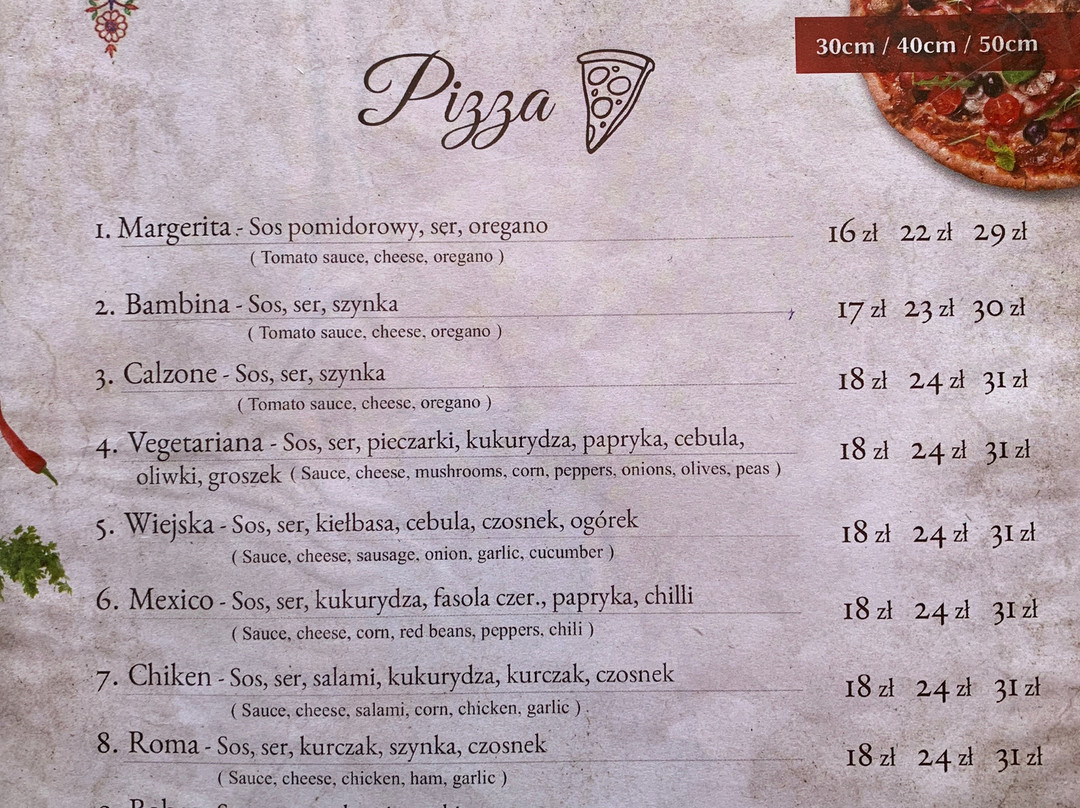 30cm / 40cm / 50cm
Pizza
1. Margerita - Sos pomidorowy, ser, oregano 16 zł 22 zł 29 zł
( Tomato sauce, cheese, oregano )
2. Bambina - Sos, ser, szynka 17 zł 23 zł 30 zł
( Tomato sauce, cheese, oregano )
3. Calzone - Sos, ser, szynka 18 zł 24 zł 31 zł
( Tomato sauce, cheese, oregano )
4. Vegetariana - Sos, ser, pieczarki, kukurydza, papryka, cebula, 18 zł 24 zł 31 zł
oliwki, groszek ( Sauce, cheese, mushrooms, corn, peppers, onions, olives, peas )
5. Wiejska - Sos, ser, kiełbasa, cebula, czosnek, ogórek 18 zł 24 zł 31 zł
( Sauce, cheese, sausage, onion, garlic, cucumber )
6. Mexico - Sos, ser, kukurydza, fasola czer., papryka, chilli 18 zł 24 zł 31 zł
( Sauce, cheese, corn, red beans, peppers, chili )
7. Chiken - Sos, ser, salami, kukurydza, kurczak, czosnek 18 zł 24 zł 31 zł
( Sauce, cheese, salami, corn, chicken, garlic )
8. Roma - Sos, ser, kurczak, szynka, czosnek 18 zł 24 zł 31 zł
( Sauce, cheese, chicken, ham, garlic )